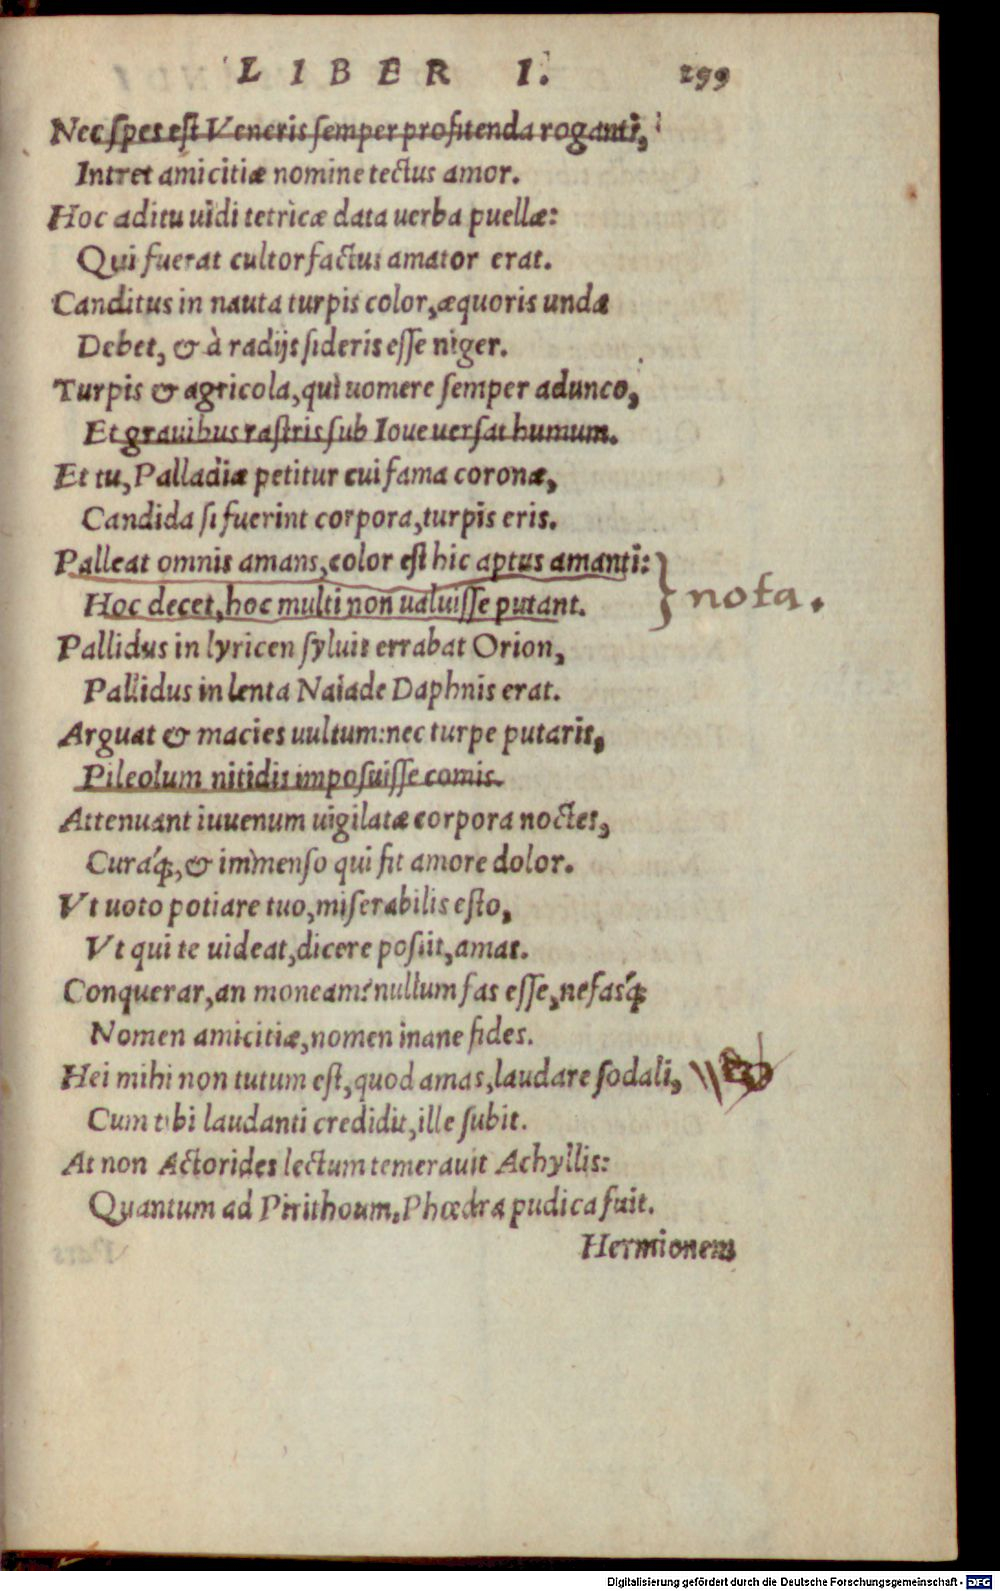 LIBER I. 299
Nec spes est Veneris semper profitenda roganti,
Intret amicitiæ nomine tectus amor.
Hoc aditu uidi tetricæ data uerba puellæ:
Qui fuerat cultor factus amator erat.
Canditus in nauta turpis color, æquoris unda
Debet, & à radijs sideris esse niger.
Turpis & agricola, qui uomere semper adunco,
Et grauibus rastris sub Ioue uersat humum.
Et tu, Palladiæ petitur cui fama coronæ,
Candida si fuerint corpora, turpis eris.
Palleat omnis amans, color est hic aptus amanti:
Hoc decet, hoc multi non ualuisse putant.
} nota.
Pallidus in lyricen syluis errabat Orion,
Pallidus in lenta Naiade Daphnis erat.
Arguat & macies uultum: nec turpe putaris,
Pileolum nitidis imposuisse comis.
Attenuant iuuenum uigilatæ corpora noctes,
Curaq́;, & immenso qui fit amore dolor.
Vt uoto potiare tuo, miserabilis esto,
Vt qui te uideat, dicere possit, amat.
Conquerar, an moneam? nullum fas esse, nefasq́;
Nomen amicitiæ, nomen inane fides.
Hei mihi non tutum est, quod amas, laudare sodali,
Cum tibi laudanti credidit, ille subit.
At non Actorides lectum temerauit Achyllis:
Quantum ad Pirithoum, Phœdra pudica fuit.
Hermionem
Digitalisierung gefördert durch die Deutsche Forschungsgemeinschaft - DFG